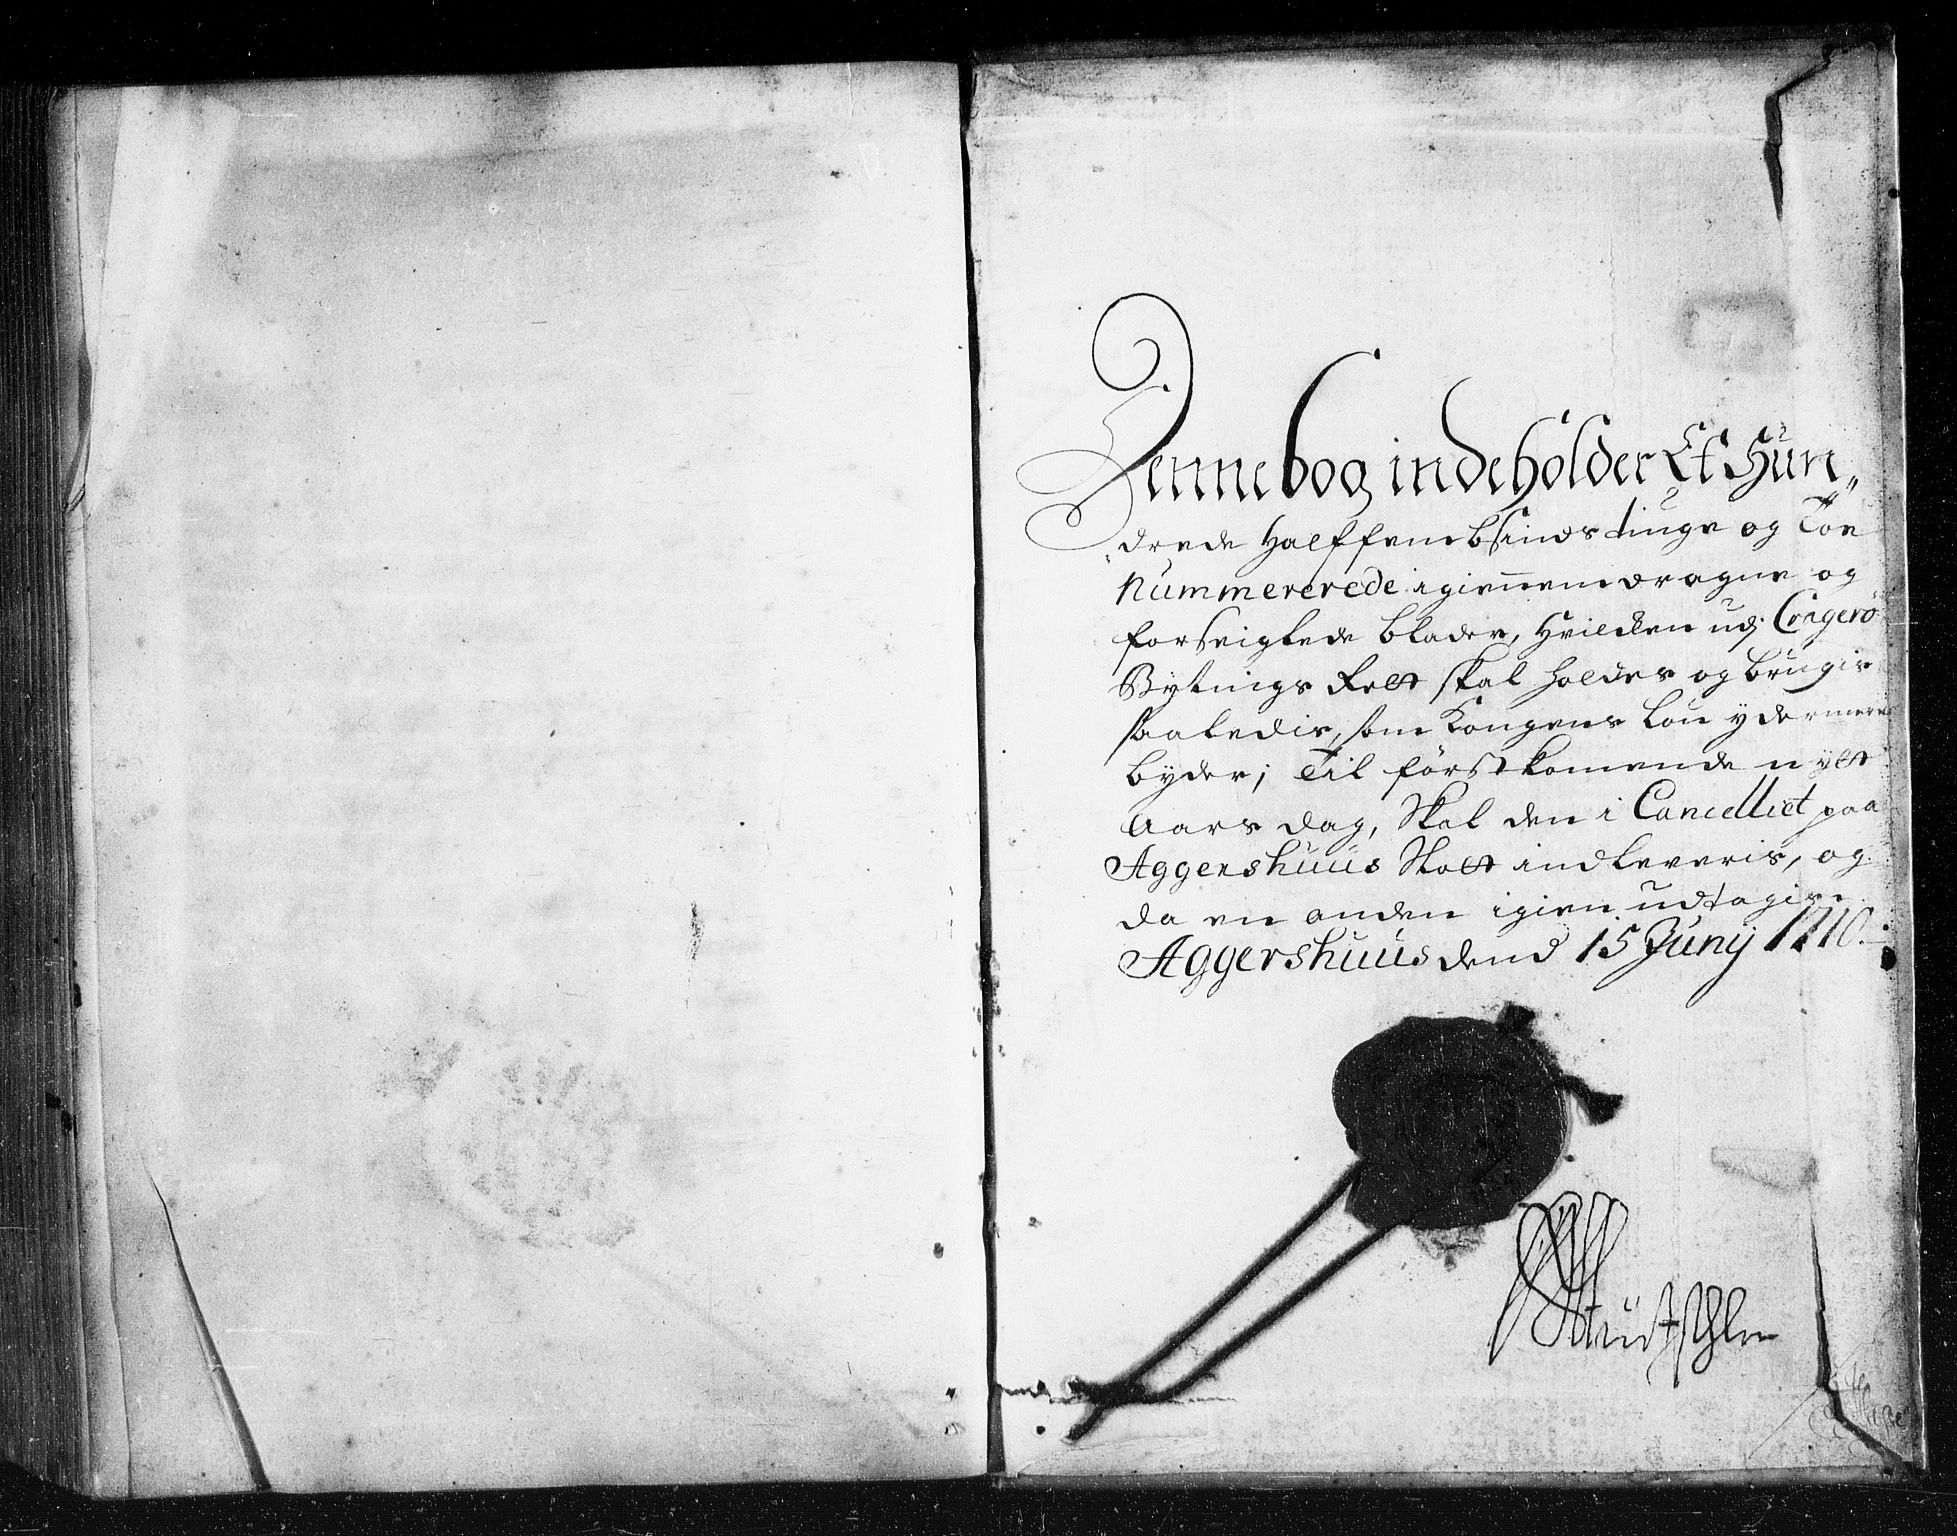 Denne bog indeholder Et Hun„
„drede Halffembsinds tiuge og Toe
Nummererede igiennemdragne og
forseiglede blader, Hvilcken udj Cragerö
Bytings Rett skal holdes og brugis
saaledis, som Kongens Lou ydermere
byder; Til förstkomende nytt
Aars dag, Skal den i Cancelliet paa
Aggershuus Slott indleveris, og
da en anden igien udtagis.
Aggershuus dend 15 Junij 1710.